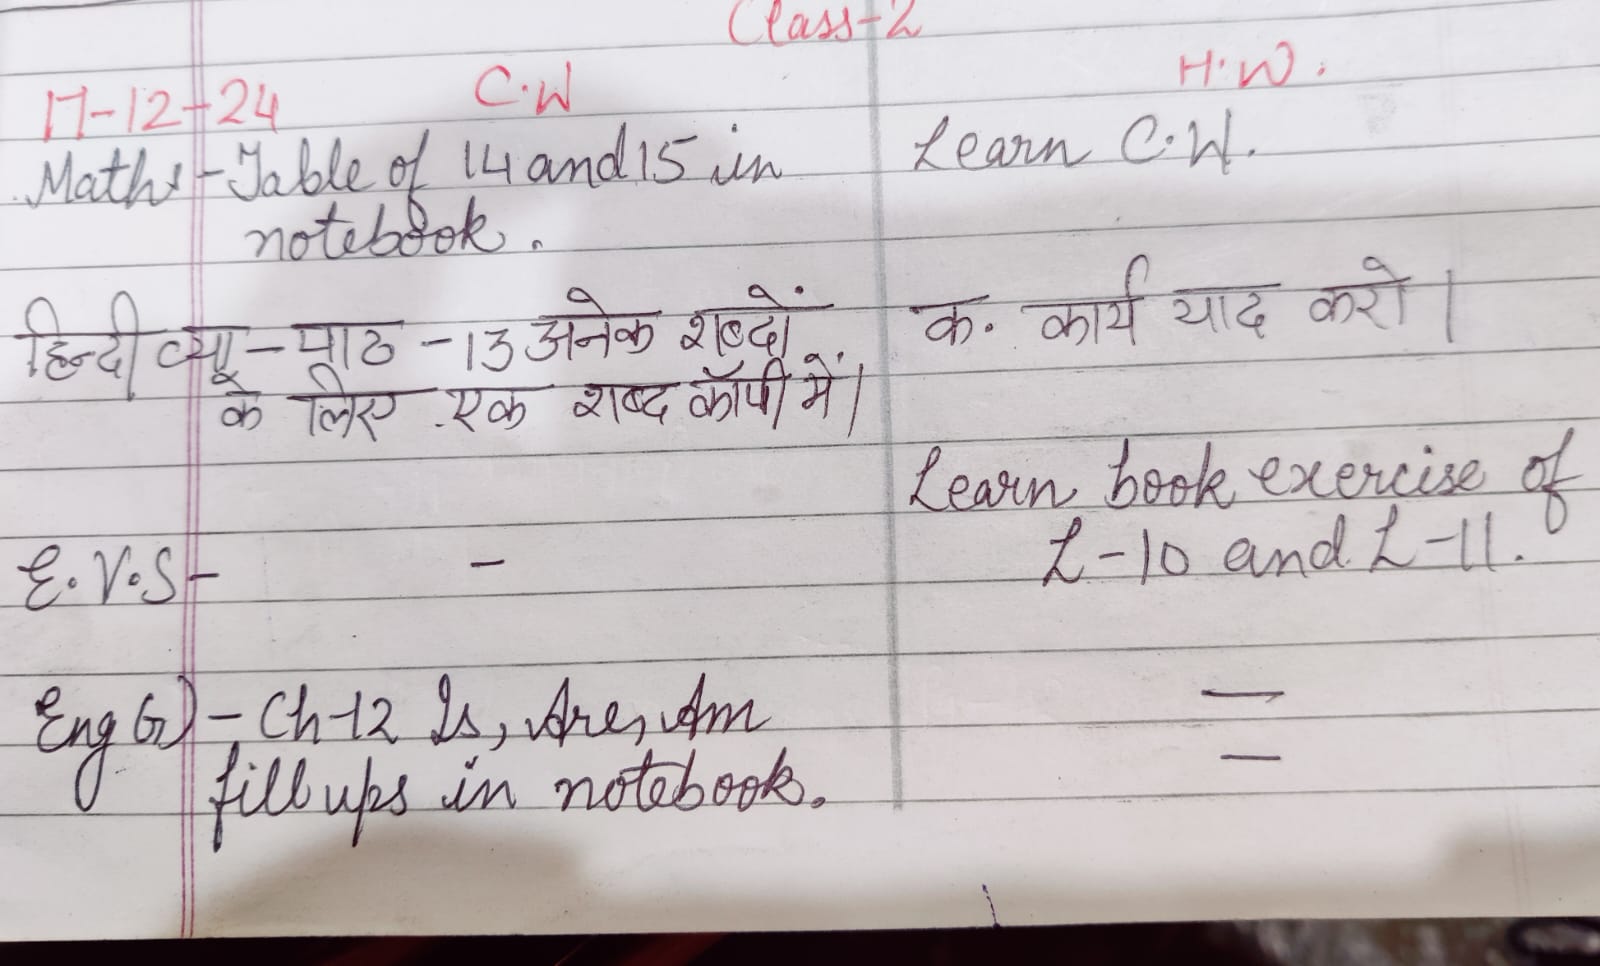 Class-2
17-12-24 C.W H.W.
Maths - Table of 14 and 15 in Learn C.W.
notebook.
हिन्दी व्या - पाठ - 13 अनेक शब्दों क. कार्य याद करो।
के लिए एक शब्द कॉपी में।
Learn book exercise of
E.V.S - - L-10 and L-11.
Eng G) - Ch-12 Is, Are, Am —
fill ups in notebook. —